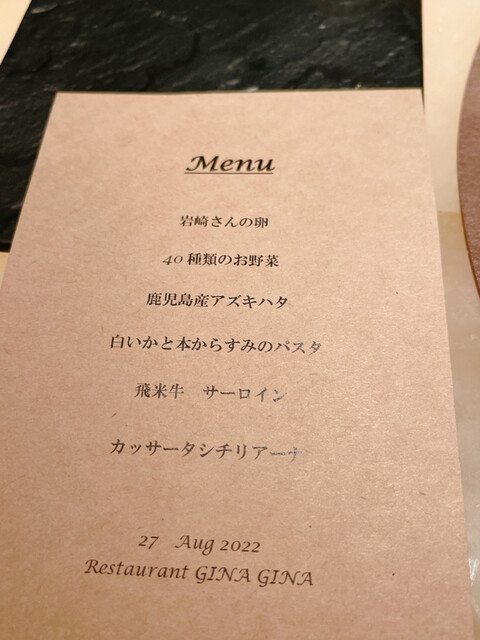 Menu
岩崎さんの卵
40種類のお野菜
鹿児島産アズキハタ
白いかと本からすみのパスタ
飛米牛　サーロイン
カッサータシチリアーナ
27 Aug 2022
Restaurant GINA GINA